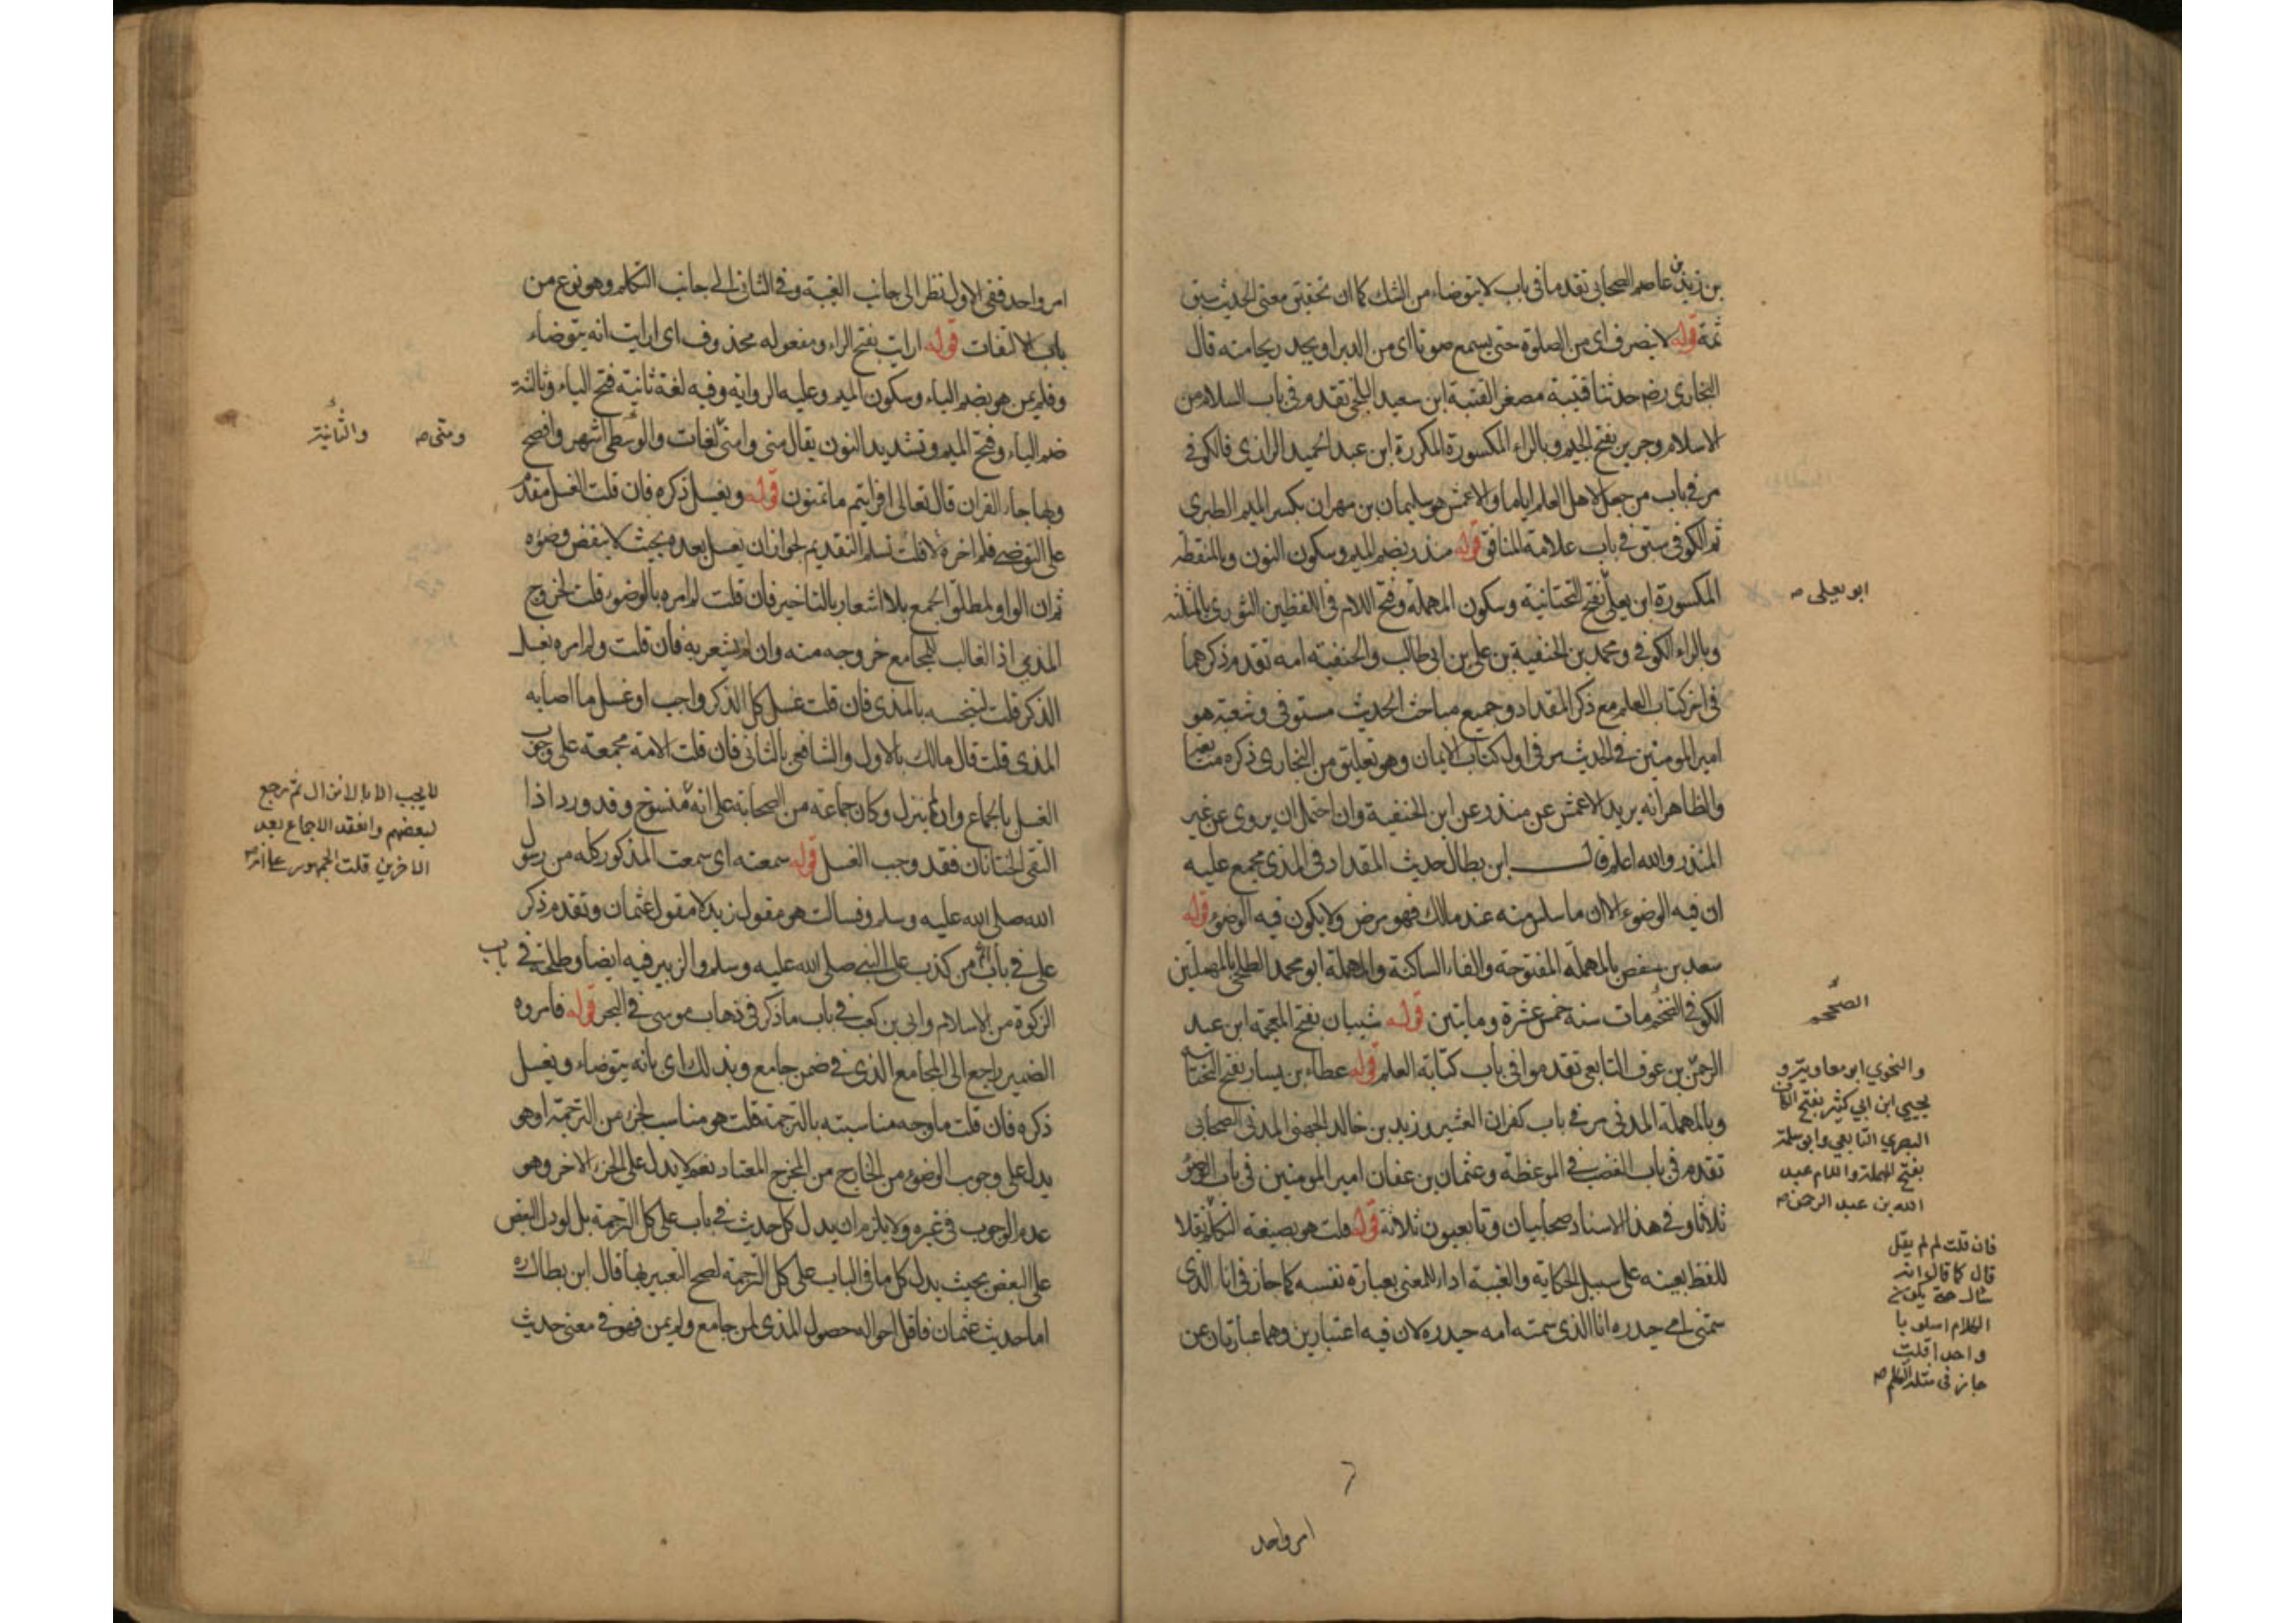 بن زيد بن عاصم الصحابى تقدما فى باب لا يتوضاء من الشك كما ان تحقيق معنى الحديث سبق
ثمة قوله لا ينصرف اى من الصلوة حتى يسمع صوتا اى من الدبر او يجد ريحا منه قال
البخارى رضه حدثنا قتيبة مصغر القتبة ابن سعيد البلخى تقدم فى باب السلام من
الاسلام وجرير بفتح الجيم وبالراء المكسورة المكررة ابن عبد الحميد الرازى فالكوفى
مر فى باب من جعل لاهل العلم اياما والاعمش هو سليمان بن مهران بكسر الميم الطبرى
ثم الكوفى سبق فى باب علامة المنافق قوله منذر بضم الميم وسكون النون وبالمنقطة
المكسورة ابن يعلى بفتح التحتانية وسكون المهملة وفتح اللام فى اللفظين الثورى بالمثلثه
وبالراء الكوفى ومحمد بن الحنفية بن على بن ابى طالب والحنفية امه تقدم ذكرهما
فى اخر كتاب العلم مع ذكر المقداد وجميع مباحث الحديث مستوفى وشعبة هو
امير المومنين فى الحديث مر فى اول كتاب الايمان وهو تعليق من البخارى ذكره متابعا
والظاهر انه يريد الاعمش عن منذر عن ابن الحنفية وان احتمل ان يروى عن غير
المنذر والله اعلم قال ابن بطال حديث المقداد فى المذى مجمع عليه
ان فيه الوضوء الا ان ما سلس منه عند مالك فهو مرض ولا يكون فيه الوضوء قوله
سعد بن حفص بالمهملة المفتوحة والفاء الساكنة والمهملة ابو محمد الطلحى بالمهملتين
الكوفى الضخم مات سنة خمس عشرة ومايتين قوله شيبان بفتح المعجمة ابن عبد
الرحمن بن عوف التابعى تقدموا فى باب كتابة العلم قوله عطاء بن يسار بفتح التحتانيه
وبالمهملة المدنى مر فى باب كفران العشير وزيد بن خالد الجهنى المدنى الصحابى
تقدم فى باب الغضب فى الموعظة وعثمان بن عفان امير المومنين فى باب الوضوء
ثلاثا وفى هذا الاسناد صحابيان وتابعيون ثلاثة قوله قلت هو بصيغة التكلم نقلا
للفظ بعينه على سبيل الحكاية والغيبة اداء للمعنى بعبارة نفسه كما جاز فى انا الذى
سمتنى امى حيدره انا الذى سمته امه حيدره لان فيه اعتبارين وهما عبارتان عن
امر واحد
ابو يعلى صح
الضخم
والنحوي ابو معاوية و
يحيي ابن ابي كثير بفتح الكاف
البصري التابعي وابو سلمة
بفتح المهملة واللام عبد
الله بن عبد الرحمن صح
فان قلت لم لم يقل
قال كما قال انه
سال حتى يكون
الكلام اسلوبا
واحدا قلت
جاز فى مثله
امر واحد ففى الاول نظر الى جانب الغيبة وفى الثانى الى جانب التكلم وهو نوع من
باب الالتفات قوله ارايت بفتح الراء ومفعوله محذوف اى ارايت انه يتوضاء
وفلم يمن هو بضم الياء وسكون الميم وعليه الرواية وفيه لغة ثانية فتح الياء وثالثة
ضم الياء وفتح الميم وتشديد النون يقال منى وامنى لغات والوسطى اشهر وافصح
وبها جاء القران قال تعالى افرايتم ما تمنون قوله ويغسل ذكره فان قلت الغسل مقدم
على التوضى فلم اخره قلت نسلم التقديم لجواز ان يغسل بعده بحيث لا ينقض وضوءه
ثم ان الواو لمطلق الجمع بلا اشعار بالتاخير فان قلت لم امره بالوضوء قلت لخروج
المذى اذ الغالب للمجامع خروجه منه وان لم يشعر به فان قلت ولم امره بغسل
الذكر قلت لتنجسه بالمذى فان قلت غسل كل الذكر واجب او غسل ما اصابه
المذى قلت قال مالك بالاول والشافعى بالثانى فان قلت الامة مجمعة على وجوب
الغسل بالجماع وان لم ينزل وكان جماعة من الصحابة على انه منسوخ وقد ورد اذا
التقى الختانان فقد وجب الغسل قوله سمعته اى سمعت المذكور كله من رسول
الله صلى الله عليه وسلم وفسالت هو مقول زيد لا مقول عثمان وتقدم ذكر
على فى باب اثم من كذب على النبى صلى الله عليه وسلم والزبير فيه ايضا وطلحة فى باب
الزكوة من الاسلام وابى بن كعب فى باب ما ذكر فى ذهاب موسى فى البحر قوله فامروه
الضمير راجع الى المجامع الذى فى ضمن جامع وبذلك اى بانه يتوضاء ويغسل
ذكره فان قلت ما وجه مناسبته بالترجمة قلت هو مناسب لجزء من الترجمة اذ هو
يدل على وجوب الوضوء من الخارج من المخرج المعتاد نعم لا يدل على الجزء الاخر وهو
عدم الوجوب فى غيره ولا يلزم ان يدل كل حديث فى باب على كل الترجمة بل لو دل البعض
على البعض بحيث يدل كل ما فى الباب على كل الترجمة لصح التعبير بها قال ابن بطال ره
اما حديث عثمان فاقل احواله حصول المذى لمن جامع ولم يمن فهو فى معنى حديث
ومنى صح
والثانية
لا يجب الا بالانزال ثم رجع
بعضهم وانعقد الاجماع بعد
الاخرين قلت الجمهور على انه صح